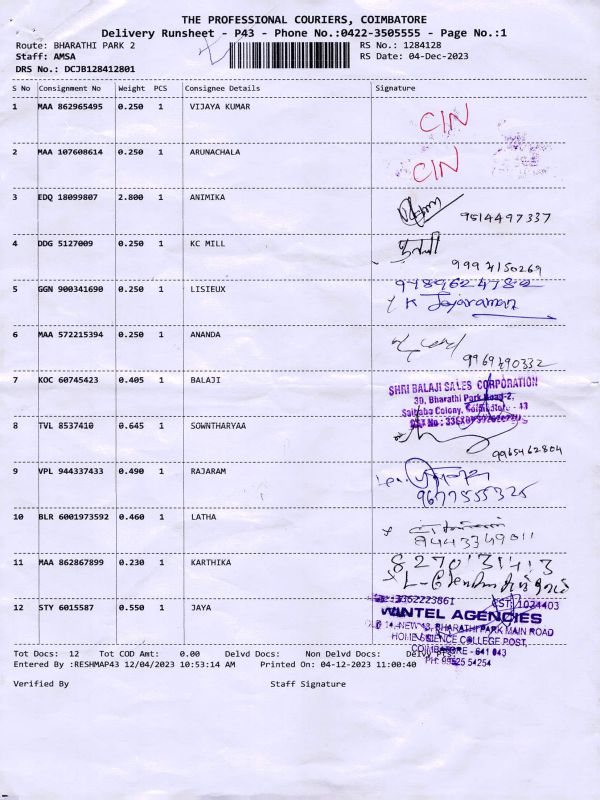 THE PROFESSIONAL COURIERS, COIMBATORE
Delivery Runsheet - P43 - Phone No.:0422-3505555 - Page No.:1
Route: BHARATHI PARK 2 RS No.: 1284128
Staff: AMSA RS Date: 04-Dec-2023
DRS No.: DCJB128412801
S No Consignment No Weight PCS Consignee Details Signature
1 MAA 862965495 0.250 1 VIJAYA KUMAR CIN
2 MAA 107608614 0.250 1 ARUNACHALA CIN
3 EDQ 18099807 2.800 1 ANIMIKA 9514497337
4 DDG 5127009 0.250 1 KC MILL
5 GGN 900341690 0.250 1 LISIEUX 9789624782
K Jejaraman
6 MAA 572215394 0.250 1 ANANDA
7 KOC 60745423 0.405 1 BALAJI SHRI BALAJI SALES CORPORATION
30, Bharathi Park Road-2,
Saibaba Colony, Coimbatore - 43
8 TVL 8537410 0.645 1 SOWNTHARYAA
9965462804
9 VPL 944337433 0.490 1 RAJARAM
9677555325
10 BLR 6001973592 0.460 1 LATHA
9443349011
11 MAA 862867899 0.230 1 KARTHIKA
12 STY 6015587 0.550 1 JAYA 3362223861 CST: 1024403
WANTEL AGENCIES
OLD 14, NEW 13, BHARATHI PARK MAIN ROAD
HOME SCIENCE COLLEGE POST,
COIMBATORE - 641 043
PH: 99525 54254
Tot Docs: 12 Tot COD Amt: 0.00 Delvd Docs: Non Delvd Docs: Delvd Pts:
Entered By :RESHMAP43 12/04/2023 10:53:14 AM Printed On: 04-12-2023 11:00:40
Verified By Staff Signature